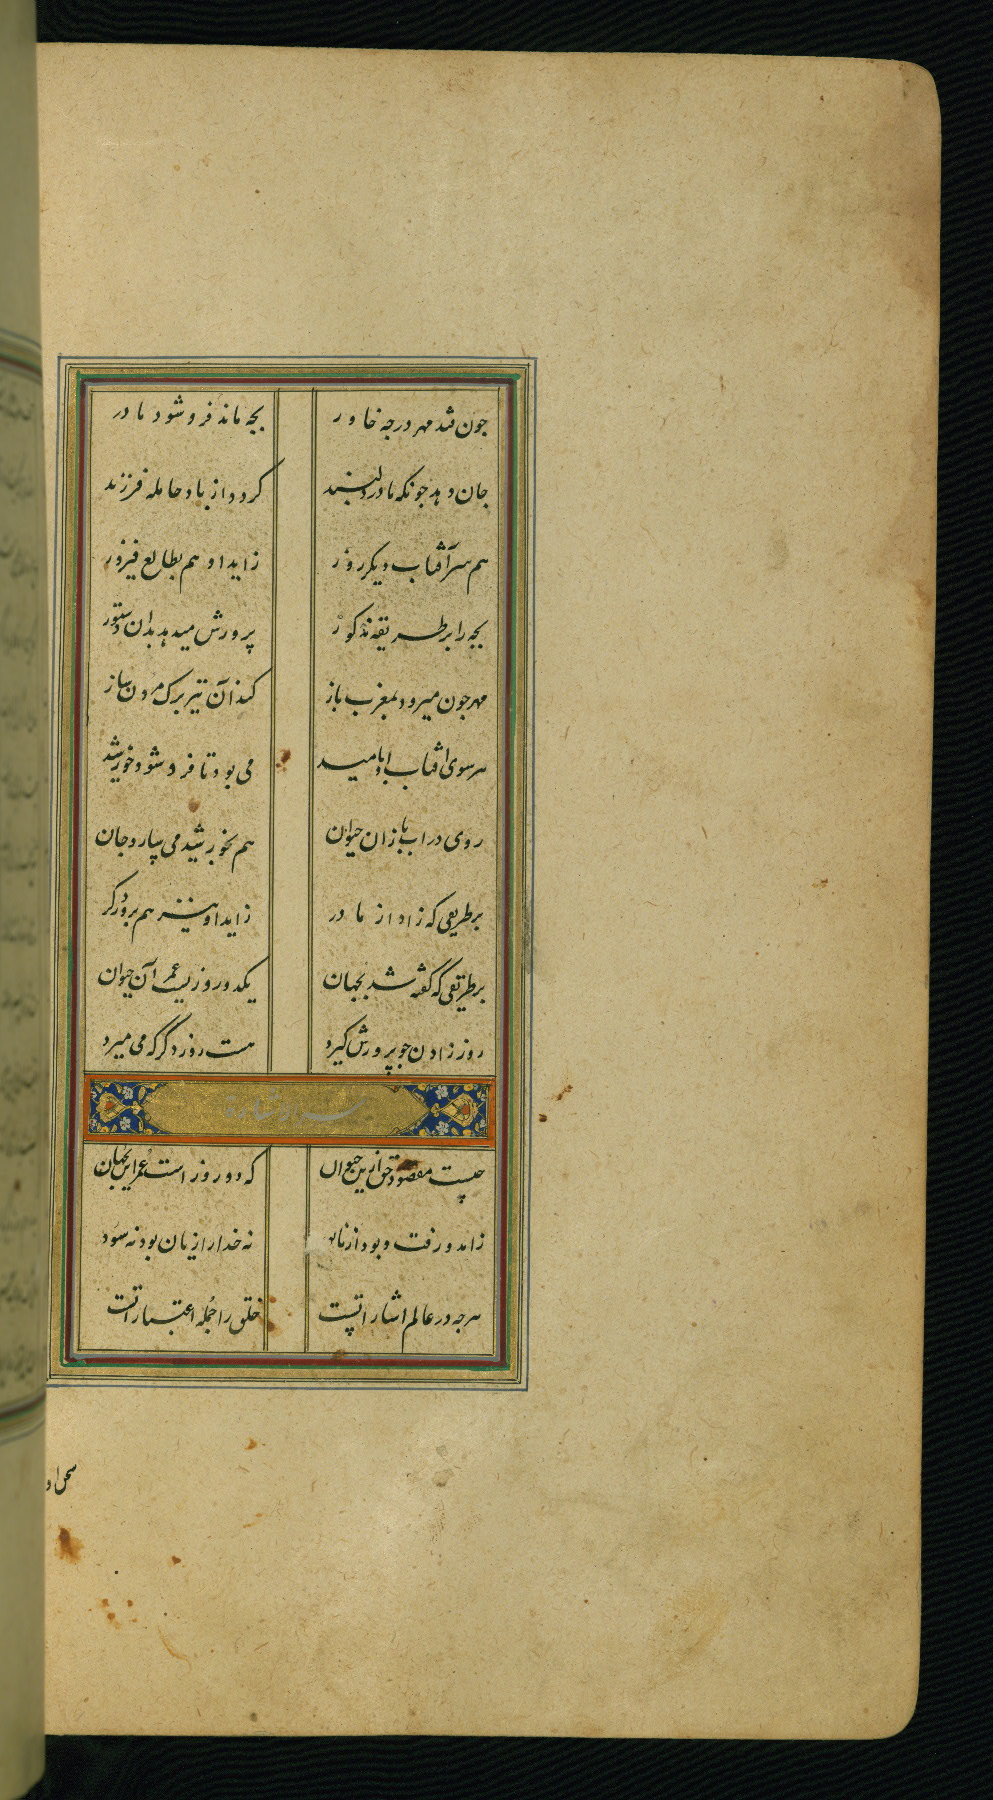 جون فتد مهر درجه خاور بجه ماند فرو شود مادر
جان دهد جونکه مادر دلبند کردد از باد حامله فرزند
هم سر آفتاب دیکر روز زاید او هم بطالع فیروز
بجه را بر طریقه مذکور پرورش میدهد بدان دستور
مهر جون میرود بمغرب باز کند آن تیز برک مردن ساز
سر سوی افتاب با امید می بود تا فرو شود خورشید
روی در اب باز ان حیوان هم بخورشید می سپارد جان
بر طریقی که زاد از مادر زاید او نیز هم بروز دکر
بر طریقی که گفته شد بجهان یکدو روزیست عمر آن حیوان
روز زادن جو پرورش گیرد هست روز دگر که می میرد
سر الاشارة
جیست مقصود حق ازین حیوان که دو روز است عمر این بجهان
زامد و رفت و بود از نابود نه خدا را زیان بود نه سود
هرجه در عالم اشاراتست خلق را جمله اعتباراتست